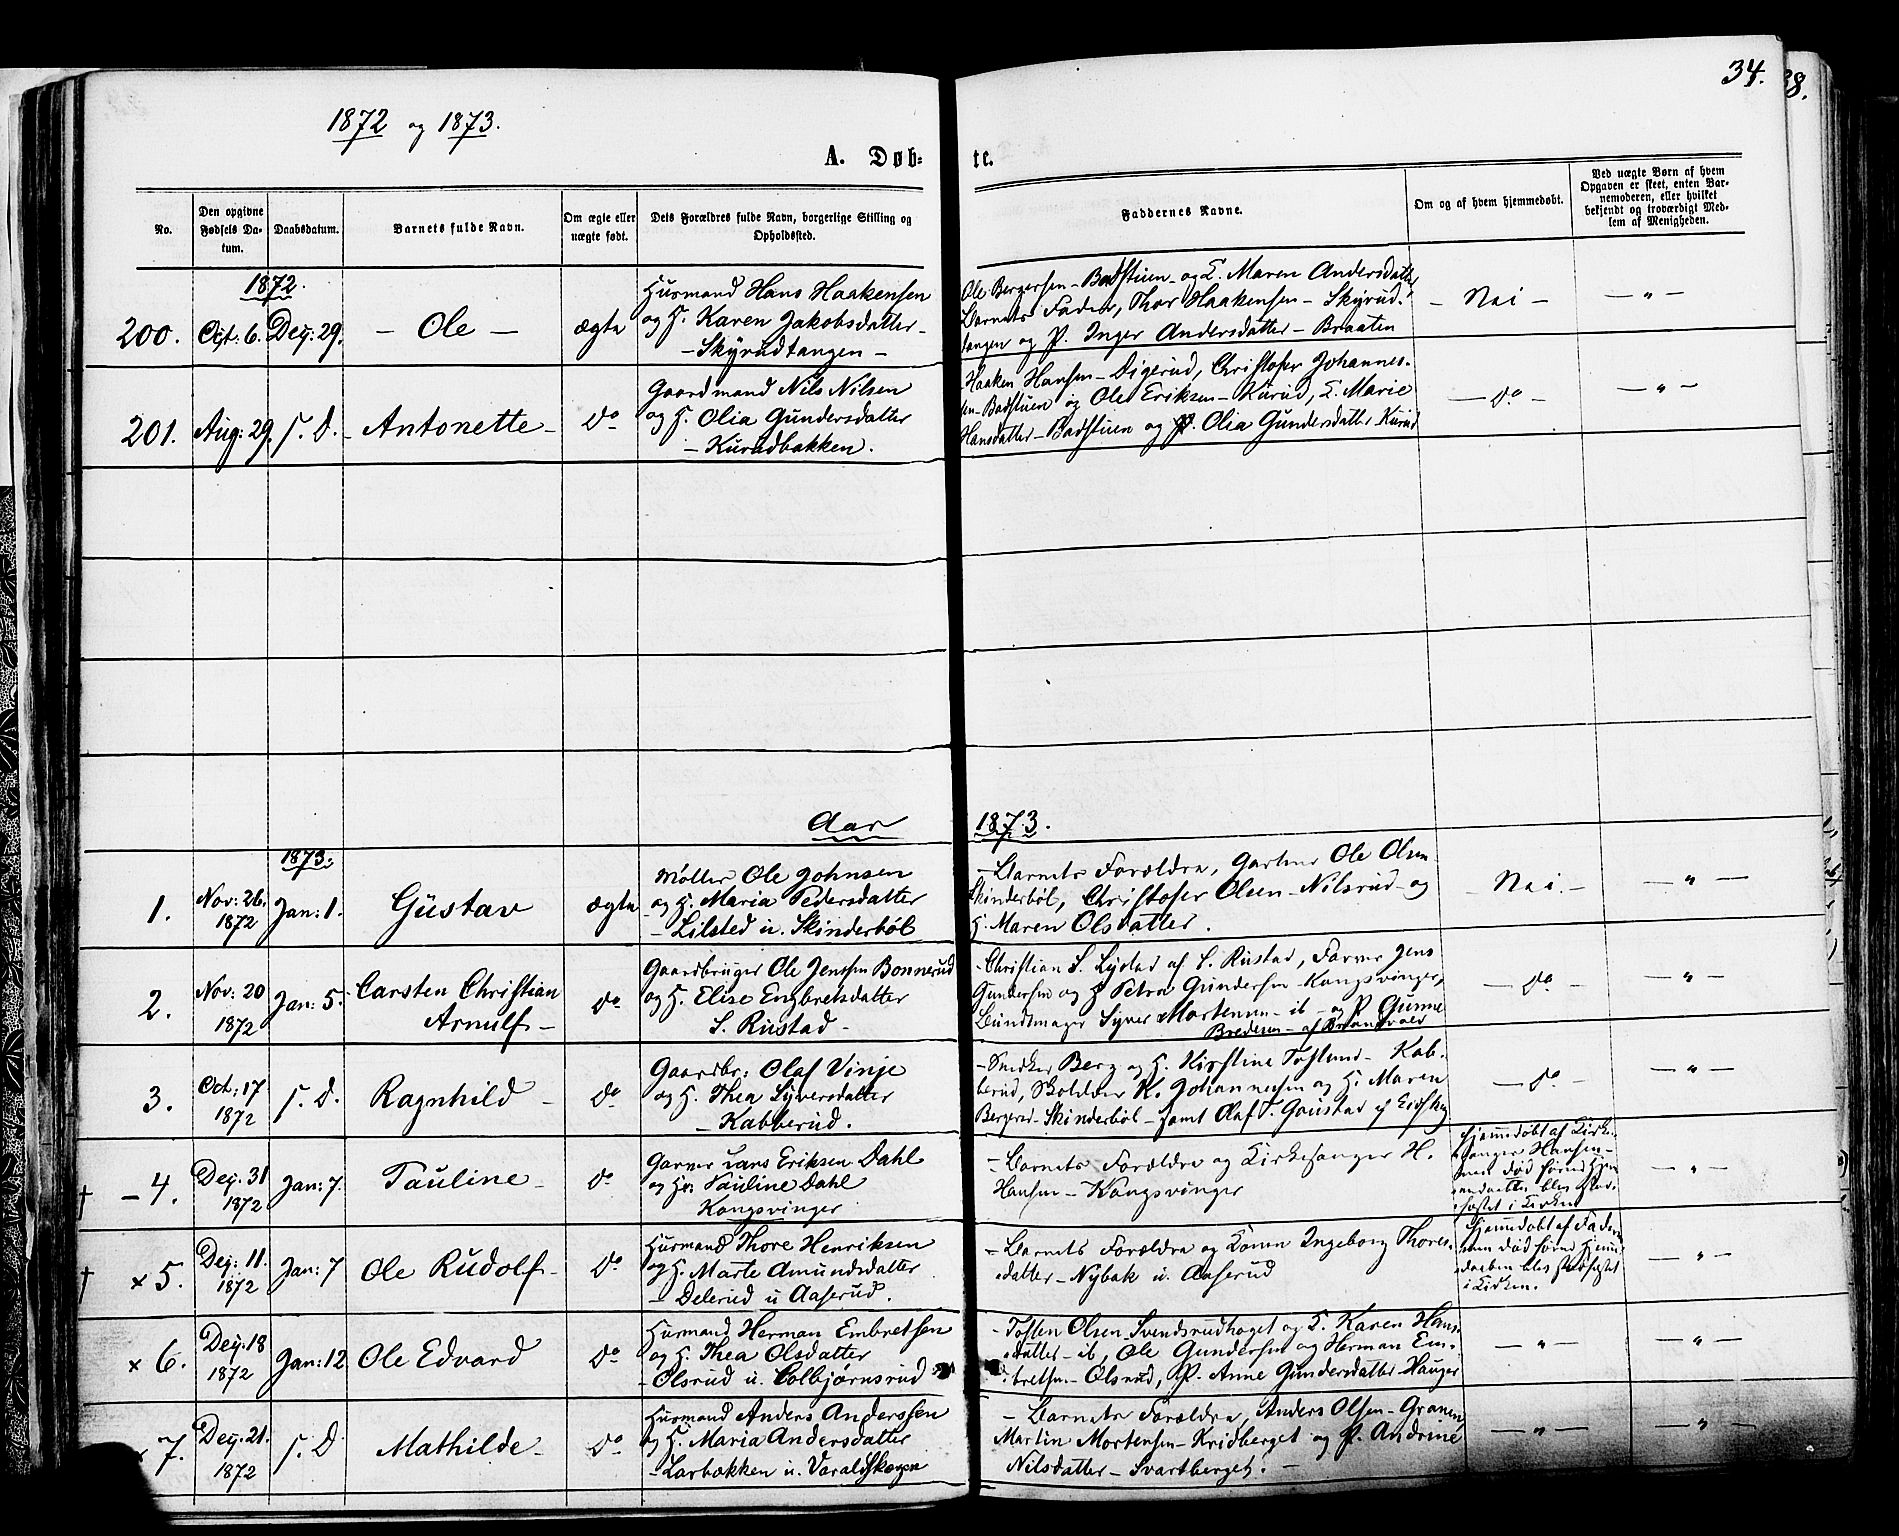 34.
38.
1872 og 1873.
A. Døb- te.
No.
Den opgivne Fødsels Da-
tum.
Daabsdatum.
Barnets fulde Navn.
Om ægte eller
uægte født.
Dets Forældres fulde Navn, borgerlige Stilling og
Opholdssted.
Faddernes Navne.
Om og af hvem hjemmedøbt.
Ved uægte Børn af hvem
Opgaven er skeet, enten Bar-
nemoderen, eller hvilket
bekjendt og troværdigt Med-
lem af Menigheden.
1872.
200. Oct: 6. Dez: 29. - Ole - ægte
Husmand Hans Haakensen
og H. Karen Jakobsdatter -
- Skyrudtangen -
Ole Bergersen - Badstuen - og E. Maren Andersdatter
Barnets Fader, Thor Haakensen - Skyrud-
tangen og P. Inger Andersdatter - Braaten
- Nei - - " -
201. Aug: 29. S. D. - Antonette - do
Gaardmand Nils Nilsen
og H. Olia Gundersdatter
- Kurudbakken.
Haaken Hansen - Digerud, Christofer Johannes-
sen - Badstuen og Ole Eriksen - Kurud, E. Marie
Hansdatter - Badstuen og P. Olia Gundersdatter Kurud
- do - - " -
Aar 1873.
1873.
1. Nov: 26. 1872 Jan: 1. Gustav ægte
Møller Ole Johnsen
og H. Maria Pedersdatter
- Lilsted u. Skinderböl
- Barnets Forældre, Gartner Ole Olsen
Skinderböl, Christofer Olsen - Nilsrud - og
H. Maren Olsdatter.
- Nei. - - " -
2. Nov: 20 1872 Jan: 5. Carsten Christian
Arnulf - do
Gaardbruger Ole Jenssen Bonnerud
og H. Elise Engbretsdatter
S. Rustad -
- Christian S. Lystad af S. Rustad, Farver Jens
Gundersen og H Petra Gundersen Kongsvinger,
Bundtmager Syver Mortensen - ib - og P Gunne
Bredesen - af Brandvold
- do - - " -
3. Oct: 17 1872 S. D. Ragnhild - do
Gaardbr: Olaf Vinje
og H. Thea Syversdatter
- Kabberud.
- Snedker Berg og H. Kirstine Toslund - Kab-
berud, Skoleldr K. Johannessen og H. Maren
Bergersd - Skinderböl - samt Olaf T. Goustad af Eidskog
- do - - " -
† - 4. Dez: 31 1872 Jan: 7. Pauline - do
Garver Lars Eriksen Dahl
og H. Pauline Dahl
Kongsvinger
- Barnets Forældre og Kirkesanger H.
Hansen - Kongsvinger
Hjemmedøbt af Kirke-
sanger Hansen -
men død førend Hjem-
medaaben blev stad-
fæstet i Kirken
- " -
† x 5. Dez: 11. 1872 Jan: 7 Ole Rudolf - do
Husmand Thore Henriksen
og H. Marte Amundsdatter
- Delerud u Aaserud.
- Barnets Forældre og Konen Ingeborg Thores-
datter - Nybak u. Aaserud
Hjemmedøbt af Faderen
men død førend Hjemme-
daaben blev stadfæstet
i Kirken.
- " -
x 6. Dez: 18 1872 Jan: 12 Ole Edvard do
Husmand Herman Embretsen
og H. Thea Olsdatter
- Olsrud u. Colbjørnsrud
- Tosten Olsen - Svendsrudhaget og E. Karen Hans-
datter - ib, Ole Gundersen og Herman Em-
bretsen - Olsrud, P. Anne Gundersdatter Hauger
- " - - " -
x 7. Dez: 21. 1872 S. D Mathilde - do
Husmand Anders Anderssen
og H. Maria Andersdatter
- Larbakken u. Varaldskogen
- Barnets Forældre, Anders Olsen - Granen
Martin Mortensen - Kridberget og P. Andrine
Nilsdatter - Svartberget. -
- " - - " -